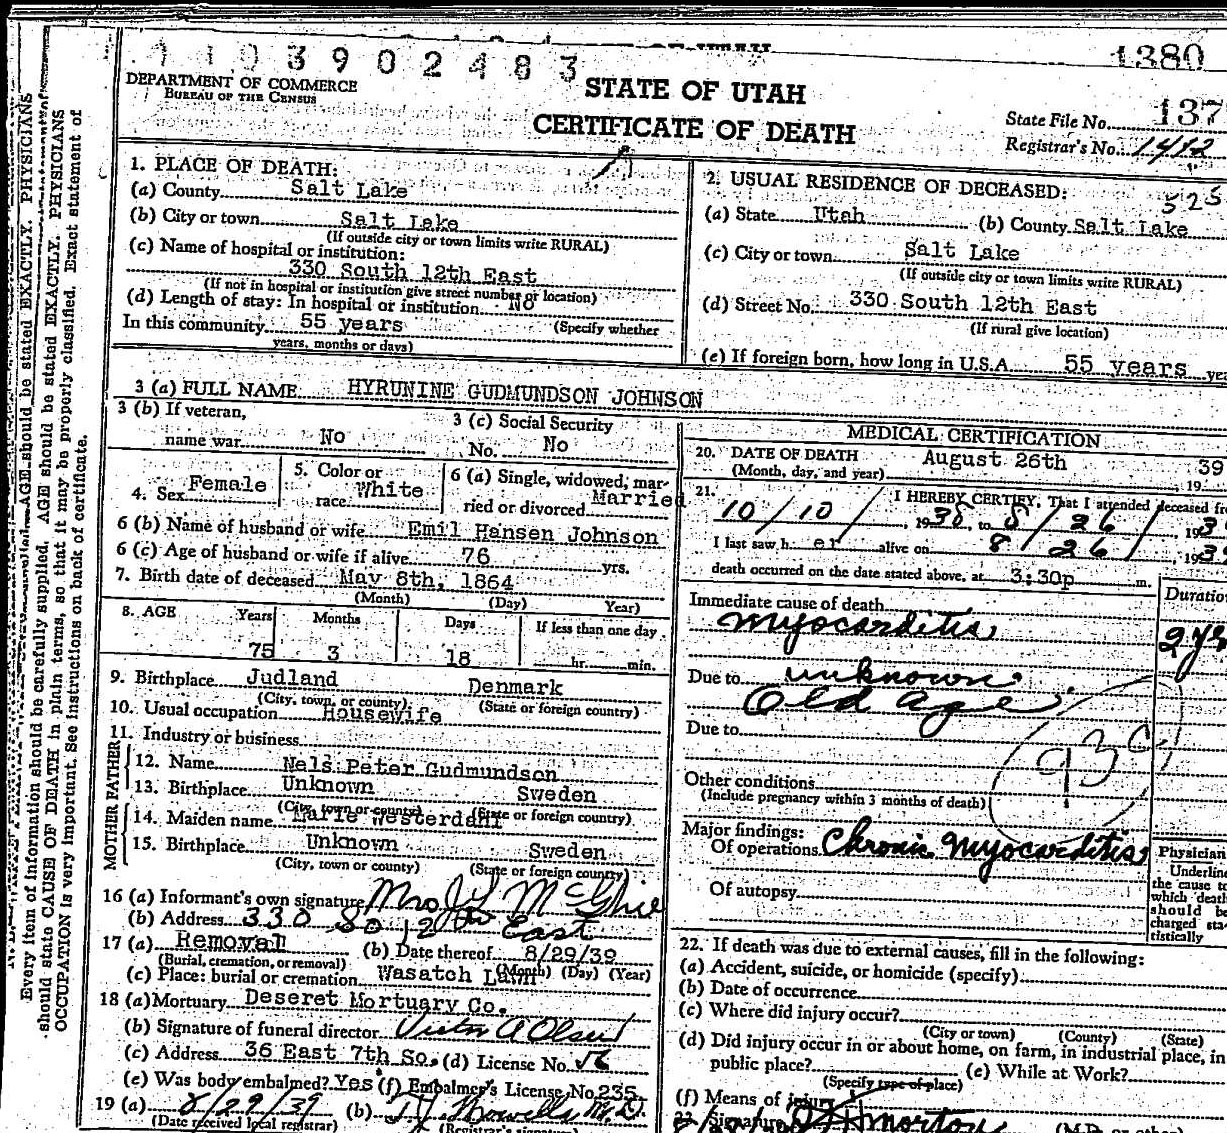 3 9 0 2 4 8 3
1380
DEPARTMENT OF COMMERCE
BUREAU OF THE CENSUS
STATE OF UTAH
CERTIFICATE OF DEATH
State File No. 137
Registrar's No. 1412
1. PLACE OF DEATH:
(a) County Salt Lake
(b) City or town Salt Lake
(If outside city or town limits write RURAL)
(c) Name of hospital or institution:
330 South 12th East
(If not in hospital or institution give street number or location)
(d) Length of stay: In hospital or institution. No
In this community 55 years (Specify whether
years, months or days)
2. USUAL RESIDENCE OF DECEASED: 525
(a) State Utah (b) County Salt Lake
(c) City or town Salt Lake
(If outside city or town limits write RURAL)
(d) Street No. 330 South 12th East
(If rural give location)
(e) If foreign born, how long in U.S.A. 55 years
3 (a) FULL NAME HYRUNINE GUDMUNDSON JOHNSON
3 (b) If veteran,
name war No
3 (c) Social Security
No. No
4. Sex Female
5. Color or
race White
6 (a) Single, widowed, mar-
ried or divorced Married
6 (b) Name of husband or wife Emil Hansen Johnson
6 (c) Age of husband or wife if alive 76 yrs.
7. Birth date of deceased May 8th, 1864
(Month) (Day) Year)
8. AGE Years Months Days If less than one day
75 3 18 hr. min.
9. Birthplace Judland Denmark
(City, town, or county) (State or foreign country)
10. Usual occupation Housewife
11. Industry or business
FATHER
12. Name Nels Peter Gudmundson
13. Birthplace Unknown Sweden
(City, town or county) (State or foreign country)
MOTHER
14. Maiden name Marie Westerdahl
15. Birthplace Unknown Sweden
(City, town or county) (State or foreign country)
16 (a) Informant's own signature Mrs J L McGhie
(b) Address 330 So 12th East
17 (a) Removal (b) Date thereof 8/29/39
(Burial, cremation, or removal) (Month) (Day) (Year)
(c) Place: burial or cremation Wasatch Lawn
18 (a) Mortuary Deseret Mortuary Co.
(b) Signature of funeral director Victor A Olsen
(c) Address 36 East 7th So. (d) License No. 56
(e) Was body embalmed? Yes (f) Embalmer's License No. 235
19 (a) 8/29/39 (b)
(Date received local registrar) (Registrar's signature)
MEDICAL CERTIFICATION
20. DATE OF DEATH August 26th 39
(Month, day, and year) 19
21. I HEREBY CERTIFY, That I attended deceased
10/10/, 1938, to 8/26/, 193
I last saw her alive on 8/26/, 193
death occurred on the date stated above, at 3:30p m.
Immediate cause of death Duration
Myocarditis 2 yrs
Due to unknown
Old Age
Due to
93c
Other conditions
(Include pregnancy within 3 months of death)
Major findings:
Of operations Chronic Myocarditis
Of autopsy
Physician
Underline
the cause to
which death
should be
charged sta-
tistically
22. If death was due to external causes, fill in the following:
(a) Accident, suicide, or homicide (specify)
(b) Date of occurrence
(c) Where did injury occur?
(City or town) (County) (State)
(d) Did injury occur in or about home, on farm, in industrial place, in
public place? (e) While at Work?
(Specify type of place)
(f) Means of injury
23. Signature
(M.D. or other)
Every item of information should be carefully supplied. AGE should be stated EXACTLY. PHYSICIANS
should state CAUSE OF DEATH in plain terms, so that it may be properly classified. Exact statement of
OCCUPATION is very important. See instructions on back of certificate.